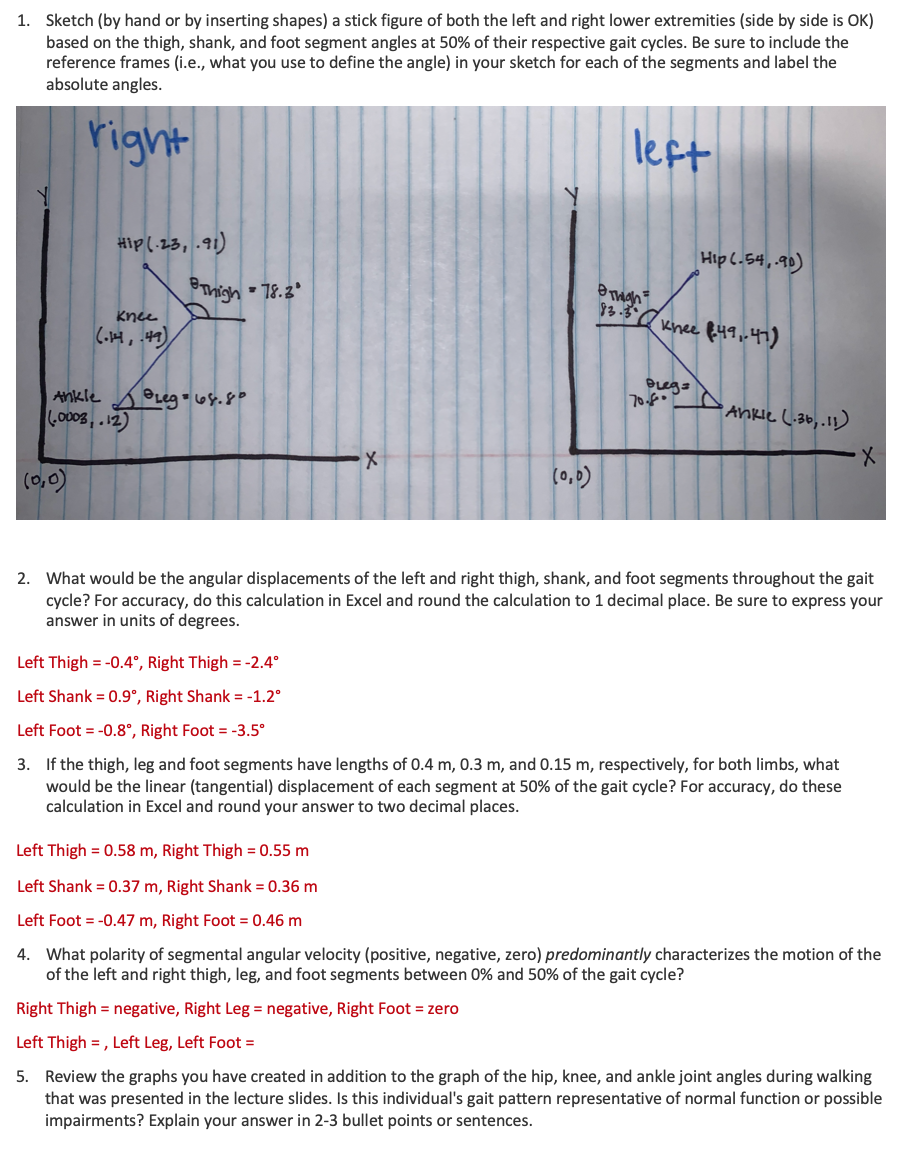 1. Sketch (by hand or by inserting shapes) a stick figure of both the left and right lower extremities (side by side is OK)
based on the thigh, shank, and foot segment angles at 50% of their respective gait cycles. Be sure to include the
reference frames (i.e., what you use to define the angle) in your sketch for each of the segments and label the
absolute angles.
right
left
Y
Y
Hip (.23, .91)
Hip (.54, .90)
θThigh = 78.3°
θThigh=
83.3°
Knee
(.14, .49)
Knee (.49, .47)
Ankle
(.0003, .12)
θLeg = 68.8°
θLeg=
70.8°
Ankle (.36, .11)
X
X
(0,0)
(0,0)
2. What would be the angular displacements of the left and right thigh, shank, and foot segments throughout the gait
cycle? For accuracy, do this calculation in Excel and round the calculation to 1 decimal place. Be sure to express your
answer in units of degrees.
Left Thigh = -0.4°, Right Thigh = -2.4°
Left Shank = 0.9°, Right Shank = -1.2°
Left Foot = -0.8°, Right Foot = -3.5°
3. If the thigh, leg and foot segments have lengths of 0.4 m, 0.3 m, and 0.15 m, respectively, for both limbs, what
would be the linear (tangential) displacement of each segment at 50% of the gait cycle? For accuracy, do these
calculation in Excel and round your answer to two decimal places.
Left Thigh = 0.58 m, Right Thigh = 0.55 m
Left Shank = 0.37 m, Right Shank = 0.36 m
Left Foot = -0.47 m, Right Foot = 0.46 m
4. What polarity of segmental angular velocity (positive, negative, zero) predominantly characterizes the motion of the
of the left and right thigh, leg, and foot segments between 0% and 50% of the gait cycle?
Right Thigh = negative, Right Leg = negative, Right Foot = zero
Left Thigh = , Left Leg, Left Foot =
5. Review the graphs you have created in addition to the graph of the hip, knee, and ankle joint angles during walking
that was presented in the lecture slides. Is this individual's gait pattern representative of normal function or possible
impairments? Explain your answer in 2-3 bullet points or sentences.